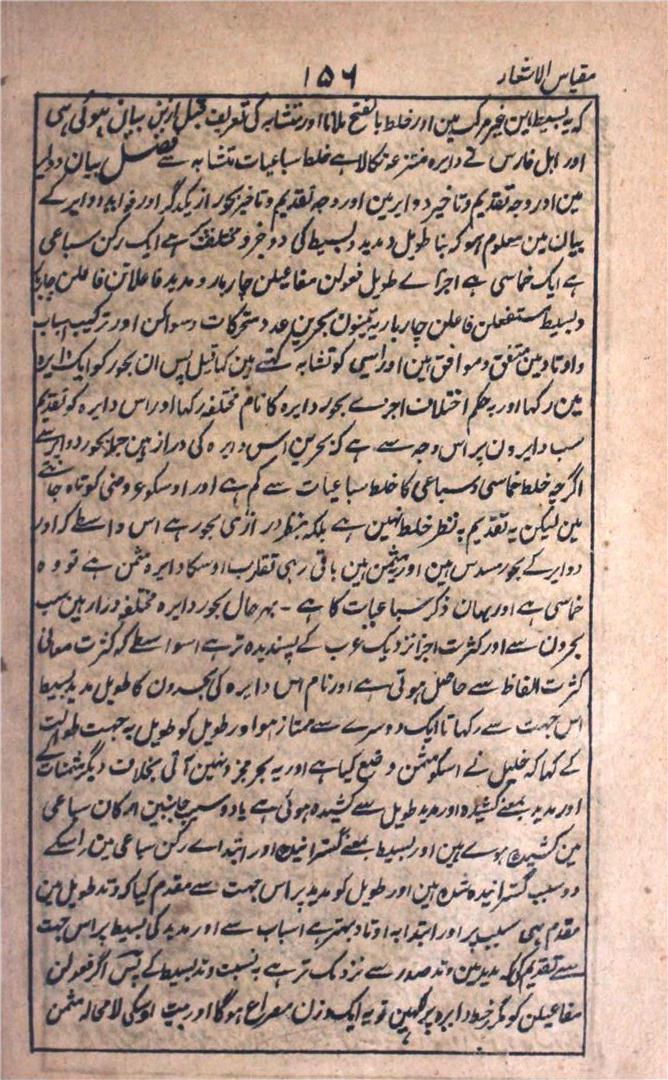 مقیاس الاشعار
۱۵۶
کہ یہ بسیط این غیر مرکب ہین اور خلط بالفتح ملانا اور متشابہ کی تعریف قبل ازین بیان ہوئی ہی
اور اہل فارس نے دایرہ منتزعہ نکالا ہے خلط سباعیات متشابہ سے فصل بیان دوایر
مین اور وجہ تقدیم و تاخیر دوایر مین اور وجہ تقدیم و تاخیر بحور از یکدگر اور فواید دوایر کے
بیان مین معلوم ہو کہ بنا طویل و مدید و بسیط کی دو جزو مختلف سے ہے ایک رکن سباعی
ہے ایک خماسی ہے اجزاے طویل فعولن مفاعیلن چار بار و مدید فاعلاتن فاعلن چاربار
و بسیط مستفعلن فاعلن چار بار یہ تینون بحرین عدد متحرکات و سواکن اور ترکیب اسباب
و اوتاد مین متفق و موافق ہین اور اسی کو تشابہ کہتے ہین کما قیل پس ان بحور کو ایک دایرہ
مین رکہا اور بہ حکم اختلاف اجزاے بحور دایرہ کا نام مختلفہ رکہا اور اس دایرہ کو تقدیم
سب دایرون پر اس وجہ سے ہے کہ بحرین اس دایرہ کی دراز ہین جملہ بحور دوایر سے
اگرچہ خلط خماسی و سباعی کا خلط سباعیات سے کم ہے اور اوسکو عروضی کوتاہ جانتے
ہین لیکن یہ تقدیم بہ نظر خلط نہین ہے بلکہ بنظر درازی بحور ہے اس واسطے کہ اور
دوایر کے بحور مسدس ہین اور یہ مثمن ہین باقی رہی تقارب اوسکا دایرہ مثمن ہے تو وہ
خماسی ہے اور یہان ذکر سباعیات کا ہے ۔ بہر حال بحور دایرہ مختلفہ دراز ہین سب
بحرون سے اور کثرت اجزا نزدیک عرب کے پسندیدہ تر ہے اسواسطے کہ کثرت معانی
کثرت الفاظ سے حاصل ہوتی ہے اور نام اس دایرہ کی بحرون کا طویل مدید بسیط
اس جہت سے رکہا تا ایک دوسرے سے ممتاز ہو اور طویل کو طویل بہ جہت طوالت
کے کہا کہ خلیل نے اسکو مثمن وضع کیا ہے اور یہ بحر مجزو نہین آتی بخلاف دیگر مثمنات کے
اور مدید بمعنے کشیدہ اور مدید طویل سے کشیدہ ہوئی ہے یا دو سبب جانبین ارکان سباعی
مین کشیدہ ہوے ہین اور بسیط بمعنے گسترانیدہ اور ابتداے رکن سباعی مین اسکے
دو سبب گسترانیدہ شدہ ہین اور طویل کو مدید پر اس جہت سے مقدم کیا کہ وتد طویل مین
مقدم ہی سبب پر اور ابتدا بہ اوتاد بہتر ہے اسباب سے اور مدید کی بسیط پر اس جہت
سے تقدیم کی کہ مدید مین وتد صدر سے نزدیک تر ہے بہ نسبت وتد بسیط کے پس اگر فعولن
مفاعیلن کو گرد خط دایرہ پر لکہین تو یہ ایک وزن مصراع ہوگا اور بیت اوسکی لا محالہ مثمن